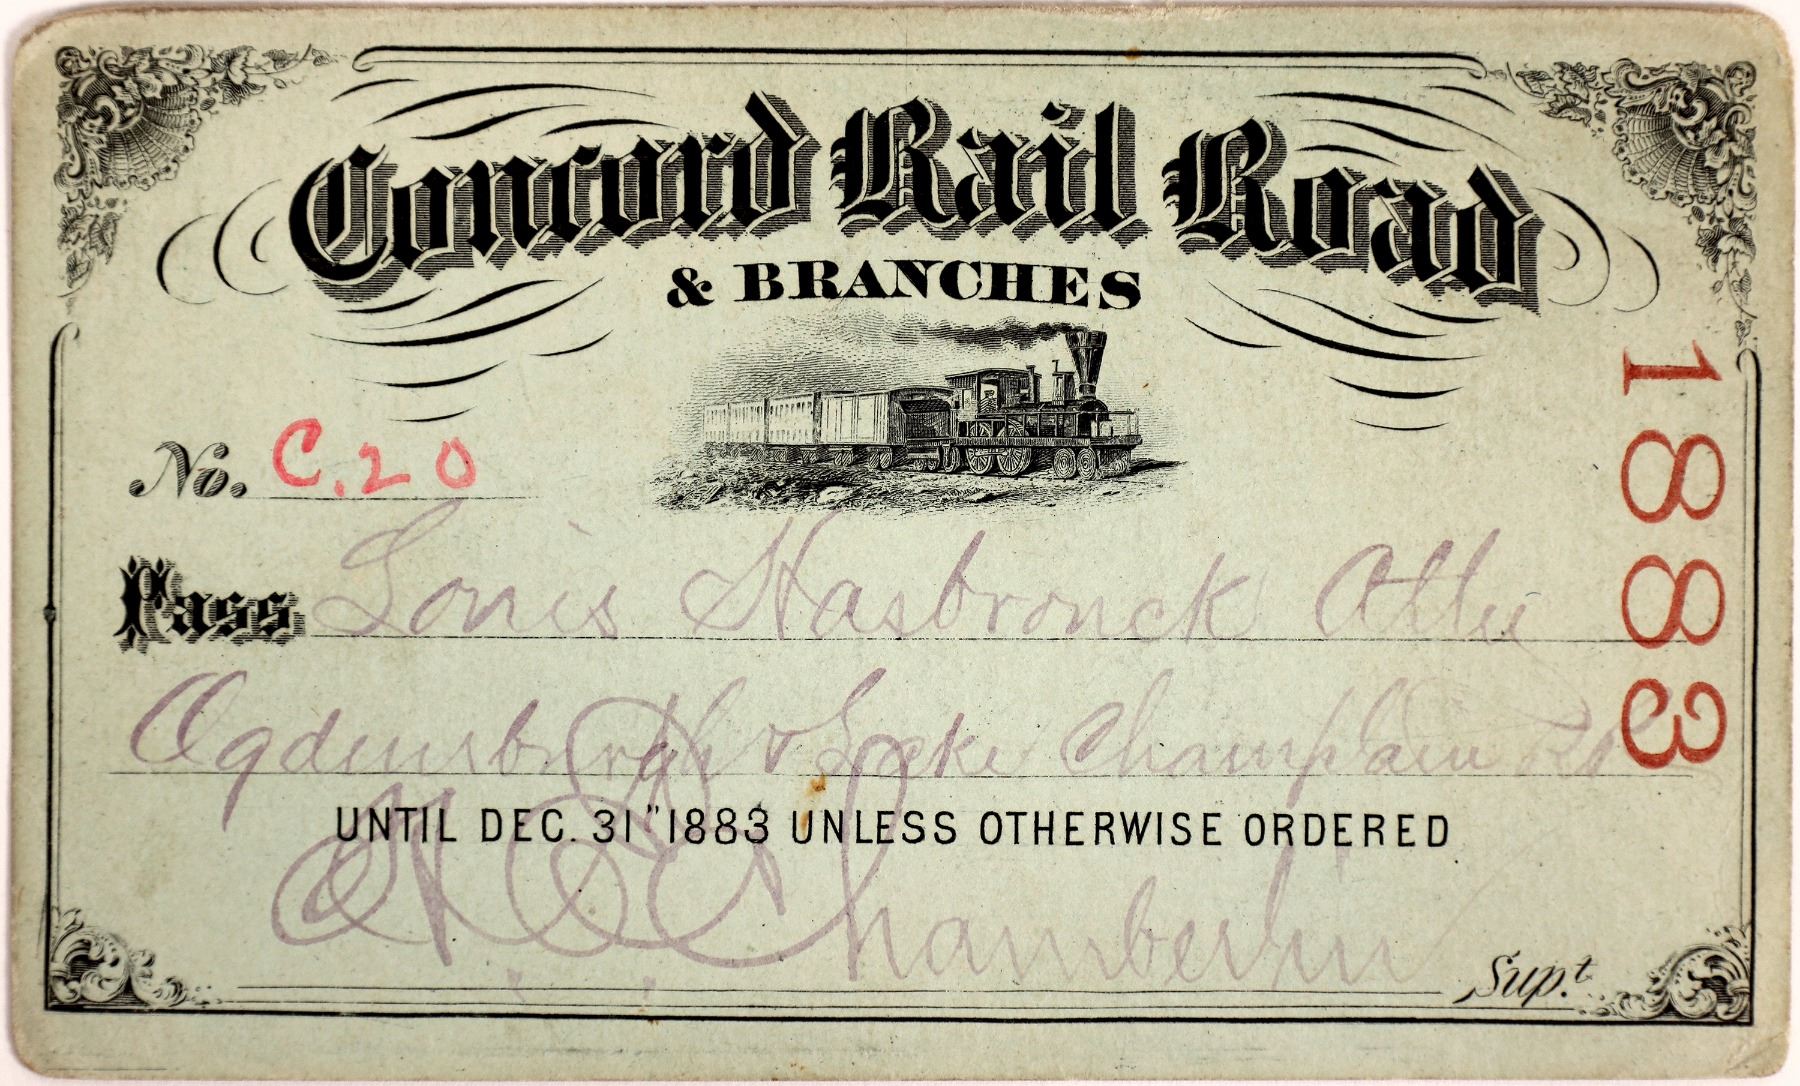 Concord Rail Road
& BRANCHES
1883
No. C.20
Pass Louis Hasbrouck Atty
Ogdensburgh & Lake Champlain RR
UNTIL DEC. 31" 1883 UNLESS OTHERWISE ORDERED
H. E. Chamberlin Sup.t